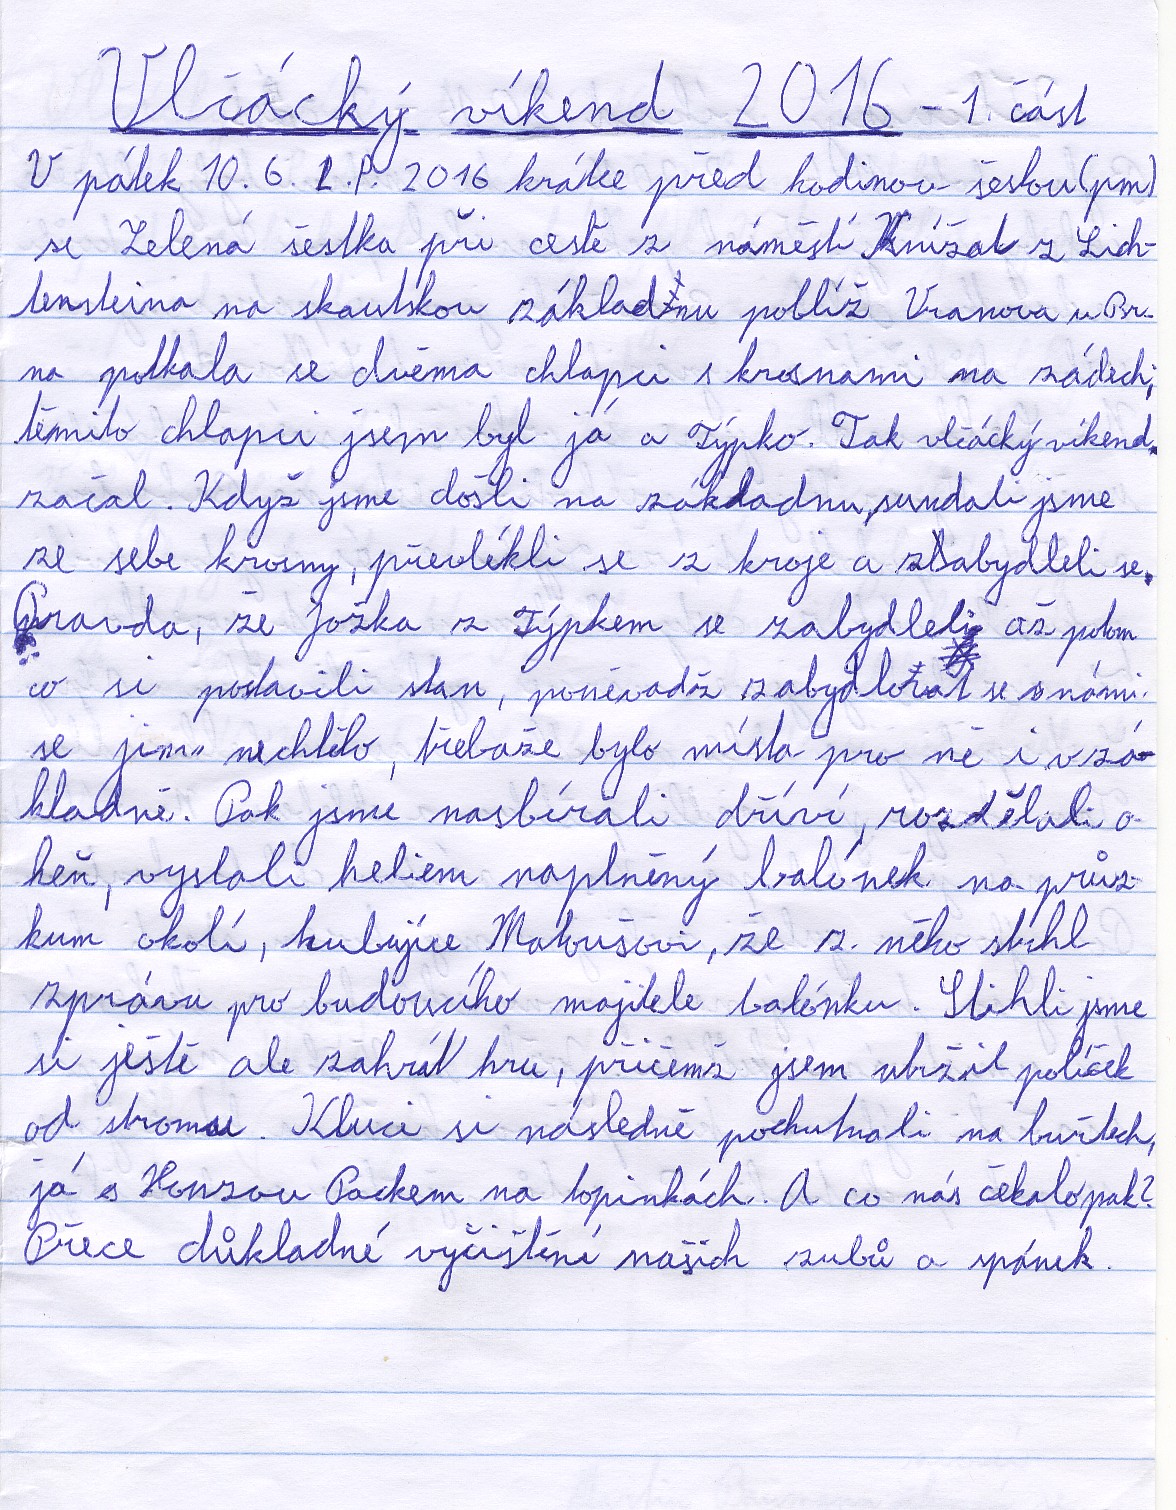 Vlčácký víkend 2016 - 1. část
V pátek 10. 6. L.P. 2016 krátce před hodinou šestou (pm)
se Zelená šestka při cestě z náměstí Knížat z Lich-
tensteina na skautskou základnu poblíž Vranova u Br-
na potkala se dvěma chlapci s krosnami na zádech;
těmito chlapci jsem byl já a Týpko. Tak vlčácký víkend
začal. Když jsme došli na základnu, sundali jsme
ze sebe krosny, převlékli se z kroje a zabydleli se.
Pravda, že Jožka z Týpkem se zabydleli až potom
co si postavili stan, poněvadž zabydlovat se s námi
se jim nechtělo, třebaže bylo místa pro ně i v zá-
kladně. Pak jsme nasbírali dříví, rozdělali o-
heň, vyslali heliem naplněný balónek na průz-
kum okolí, hubujíce Matoušovi, že z něho strhl
zprávu pro budoucího majitele balónku. Stihli jsme
si ještě ale zahrát hru, přičemž jsem utržil políček
od stromu. Kluci si následně pochutnali na buřtech,
já s Honzou Packem na topinkách. A co nás čekalo pak?
Přece důkladné vyčištění našich zubů a spánek.